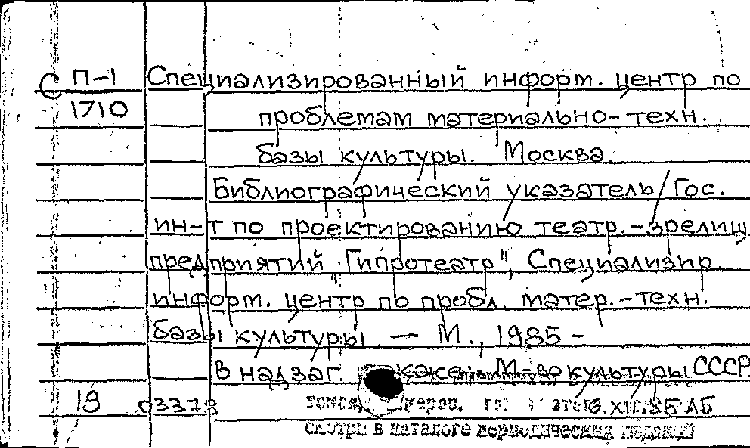 С П-1 Специализированный информ. центр по
1710 проблемам материально-техн.
базы культуры. Москва.
Библиографический указатель/Гос.
ин-т по проектированию театр.-зрелищ
предприятий "Гипротеатр", Специализир.
информ. центр по пробл. матер.-техн.
базы культуры. — М., 1985 -
В надзаг. М-во культуры СССР
19 03373
Смотри в каталоге периодических изданий